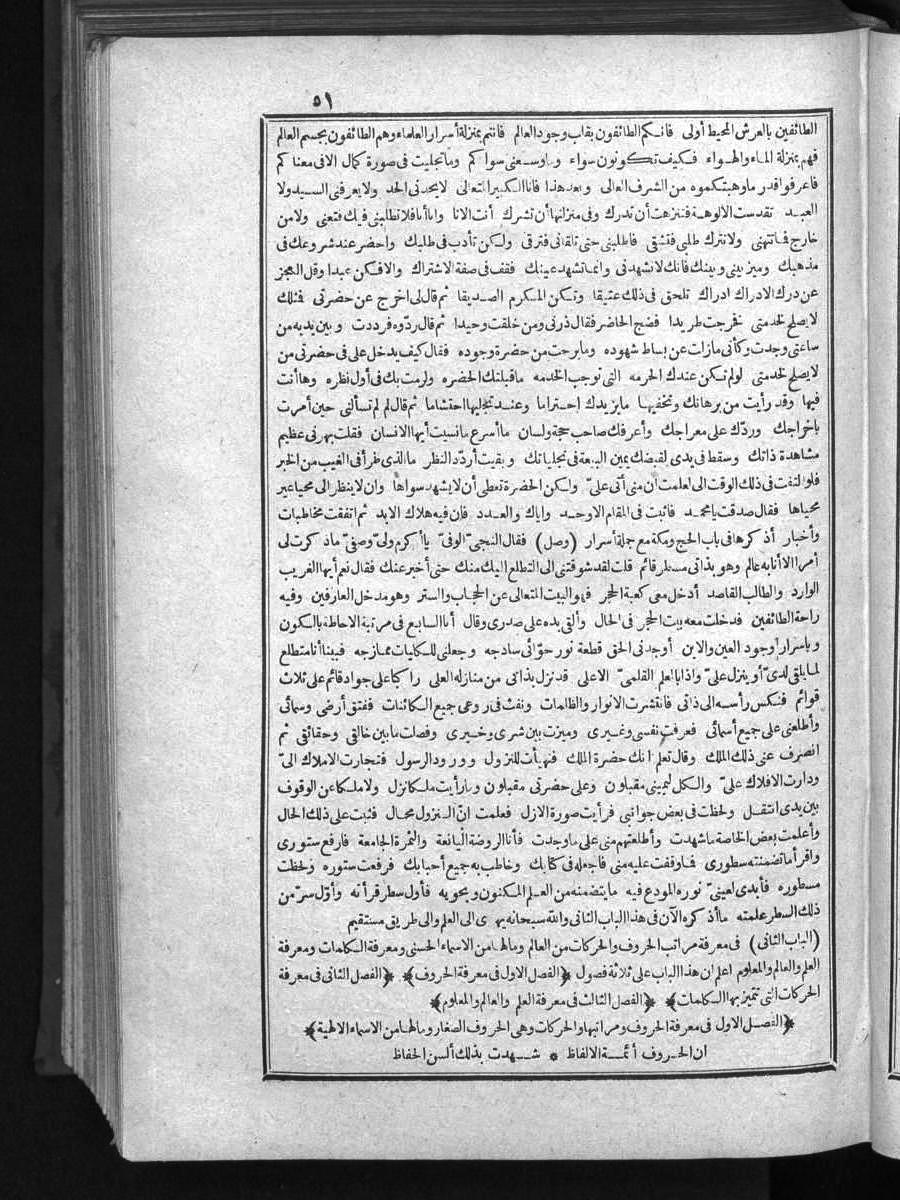 ٥١
الطائفين بالعرش المحيط أولى فانكم الطائفون بقلب وجود العالم فانتم بمنزلة أسرار العلماء وهم الطائفون بجسم العالم
فهم بمنزلة الماء والهواء فكيف تكونون سواء وما وسعنى سواكم وما تجليت فى صورة كمال الا فى معناكم
فاعرفوا قدر ما وهبتكموه من الشرف العالى وبعد هذا فانا الكبير المتعالى لا يحدنى الحد ولا يعرفنى السيد ولا
العبد تقدست الالوهة فتنزهت أن تدرك وفى منزلتها أن تشرك أنت الانا وانا أنا فلا تطلبنى فيك فتعنى ولا من
خارج فما تتهنى ولا تترك طلبى فتشقى فاطلبنى حتى تلقانى فترقى ولكن تأدب فى طلبك واحضر عند شروعك فى
مذهبك وميز بينى وبينك فانك لا تشهدنى وانما تشهد عينك فقف فى صفة الاشتراك والا فكن عبدا وقل العجز
عن درك الادراك ادراك تلحق فى ذلك عتيقا وتكن المكرم الصديقا ثم قال لى اخرج عن حضرتى فمثلك
لا يصلح لخدمتى فخرجت طريدا فضج الحاضر فقال ذرنى ومن خلقت وحيدا ثم قال ردّوه فرددت وبين يديه من
ساعتى وجدت وكأنى ما زلت عن بساط شهوده وما برحت من حضرة وجوده فقال كيف يدخل على فى حضرتى من
لا يصلح لخدمتى لو لم تكن عندك الحرمه التى توجب الخدمه ما قبلتك الحضره ولرمت بك فى أول نظره وها أنت
فيها وقد رأيت من برهانك وتحفيها ما يزيدك احتراما وعند تجليها احتشاما ثم قال لم لم تسألنى حين أمرت
باخراجك وردّك على معراجك وأعرفك صاحب حجة ولسان ما أسرع ما نسيت أيها الانسان فقلت بهرنى عظيم
مشاهدة ذاتك وسقط فى يدى لقبضك يمين البيعة فى تجلياتك وبقيت أردّد النظر ما الذى طرأ فى الغيب من الخبر
فلو التفت فى ذلك الوقت الى لعلمت أن منى أتى علىّ ولكن الحضرة تعطى أن لا يشهد سواها وان لا ينظر الى محيا غير
محياها فقال صدقت يا محمد فاثبت فى المقام الاوحد واياك والعدد فان فيه هلاك الابد ثم اتفقت مخاطبات
وأخبار أذكرها فى باب الحج ومكة مع جملة أسرار (وصل) فقال النجىّ الوفىّ يا أكرم ولىّ وصفىّ ما ذكرت لى
أمرا الا أنا به عالم وهو بذاتى مسطر قائم قلت لقد شوقتنى الى التطلع اليك منك حتى أخبر عنك فقال نعم أيها الغريب
الوارد والطالب القاصد أدخل معى كعبة الحجر فهو البيت المتعالى عن الحجاب والستر وهو مدخل العارفين وفيه
راحة الطائفين فدخلت معه بيت الحجر فى الحال وألقى يده على صدرى وقال أنا السابع فى مرتبة الاحاطة بالكون
وباسرار وجود العين والاين أوجدنى الحق قطعة نور حوّائى ساذجه وجعلنى للكليات ممازجه فبينا أنا متطلع
لما يلقى لدىّ أو ينزل علىّ واذا بالعلم القلمىّ الاعلى قد نزل بذاتى من منازله العلى راكبا على جواد قائم على ثلاث
قوائم فنكس رأسه الى ذاتى فانتشرت الانوار والظلمات ونفث فى روعى جميع الكائنات ففتق أرضى وسمائى
وأطلعنى على جميع أسمائى فعرفت نفسى وغيرى وميزت بين شرى وخيرى وفصلت ما بين خالقى وحقائقى ثم
انصرف عنى ذلك الملك وقال تعلم انك حضرة الملك فتهيأت للنزول وورود الرسول فتجارت الاملاك الىّ
ودارت الافلاك علىّ والكل ليمينى مقبلون وعلى حضرتى مقبلون وما رأيت ملكا نزل ولا ملكا عن الوقوف
بين يدى انتقل ولحظت فى بعض جوانبى فرأيت صورة الازل فعلمت انّ النزول محال فثبت على ذلك الحال
وأعلمت بعض الخاصة ما شهدت وأطلعتهم منى على ما وجدت فأنا الروضة اليانعة والثمرة الجامعة فارفع ستورى
واقرأ ما تضمنته سطورى فما وقفت عليه منى فاجعله فى كتابك وخاطب به جميع أحبابك فرفعت ستوره ولحظت
مسطوره فأبدى لعينىّ نوره المودع فيه ما يتضمنه من العلم المكنون ويحويه فأول سطر قرأته وأوّل سرّ من
ذلك السطر علمته ما أذكره الآن فى هذا الباب الثانى والله سبحانه يهدى الى العلم والى طريق مستقيم
(الباب الثانى) فى معرفة مراتب الحروف والحركات من العالم وما لها من الاسماء الحسنى ومعرفة الكلمات ومعرفة
العلم والعالم والمعلوم اعلم ان هذا الباب على ثلاثة فصول ﴿الفصل الاول فى معرفة الحروف﴾ ﴿الفصل الثانى فى معرفة
الحركات التى تتميز بها الكلمات﴾ ﴿الفصل الثالث فى معرفة العلم والعالم والمعلوم﴾
﴿الفصل الاول فى معرفة الحروف ومراتبها والحركات وهى الحروف الصغار وما لها من الاسماء الالهية﴾
ان الحروف أئمة الالفاظ * شهدت بذلك ألسن الحفاظ